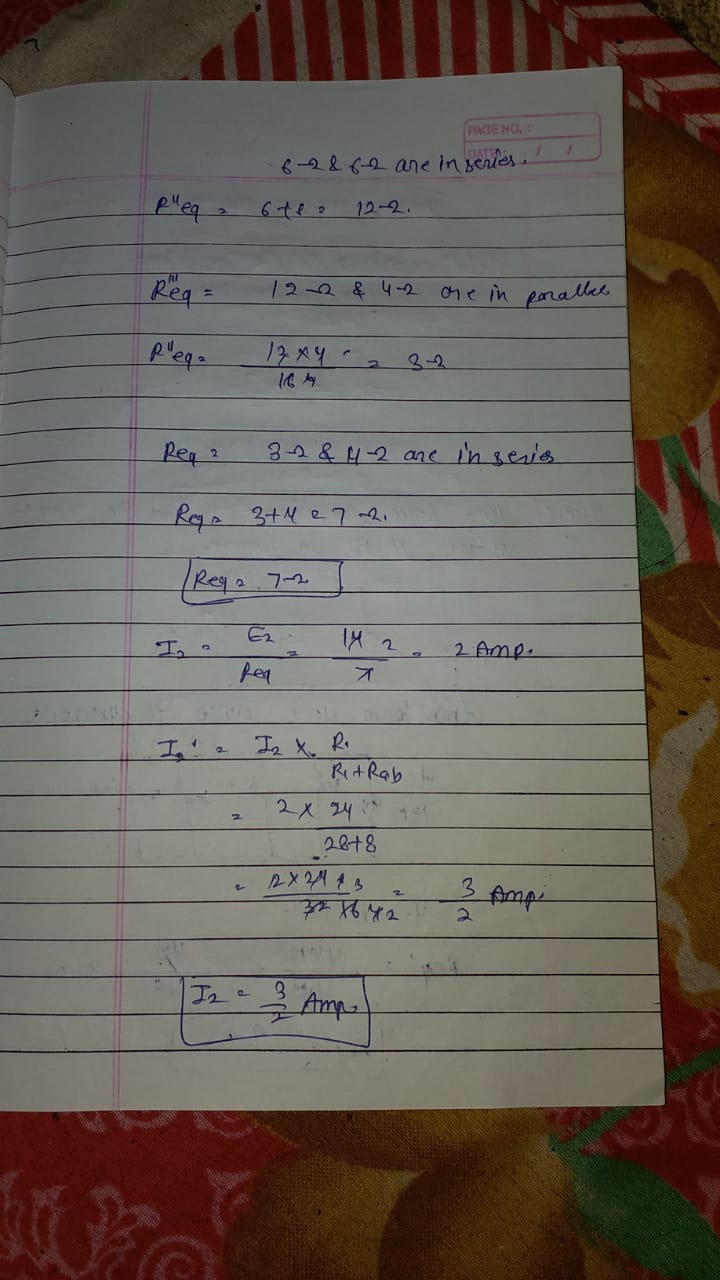 PAGE NO. :
DATE : / /
6Ω & 6Ω are in series.
R"eq = 6+6 = 12Ω.
R'''eq = 12Ω & 4Ω are in parallel
R"eq = 12×4 / 16 4 = 3Ω
Req = 3Ω & 4Ω are in series
Req = 3+4 = 7Ω.
Req = 7Ω
I2 = E2 / Req = 14 2 / 7 = 2 Amp.
I2' = I2 × R1 / R1+Rab
= 2 × 24 / 28+8
= 2×24 / 32 16 = 3/2 Amp.
I2 = 3/2 Amp.